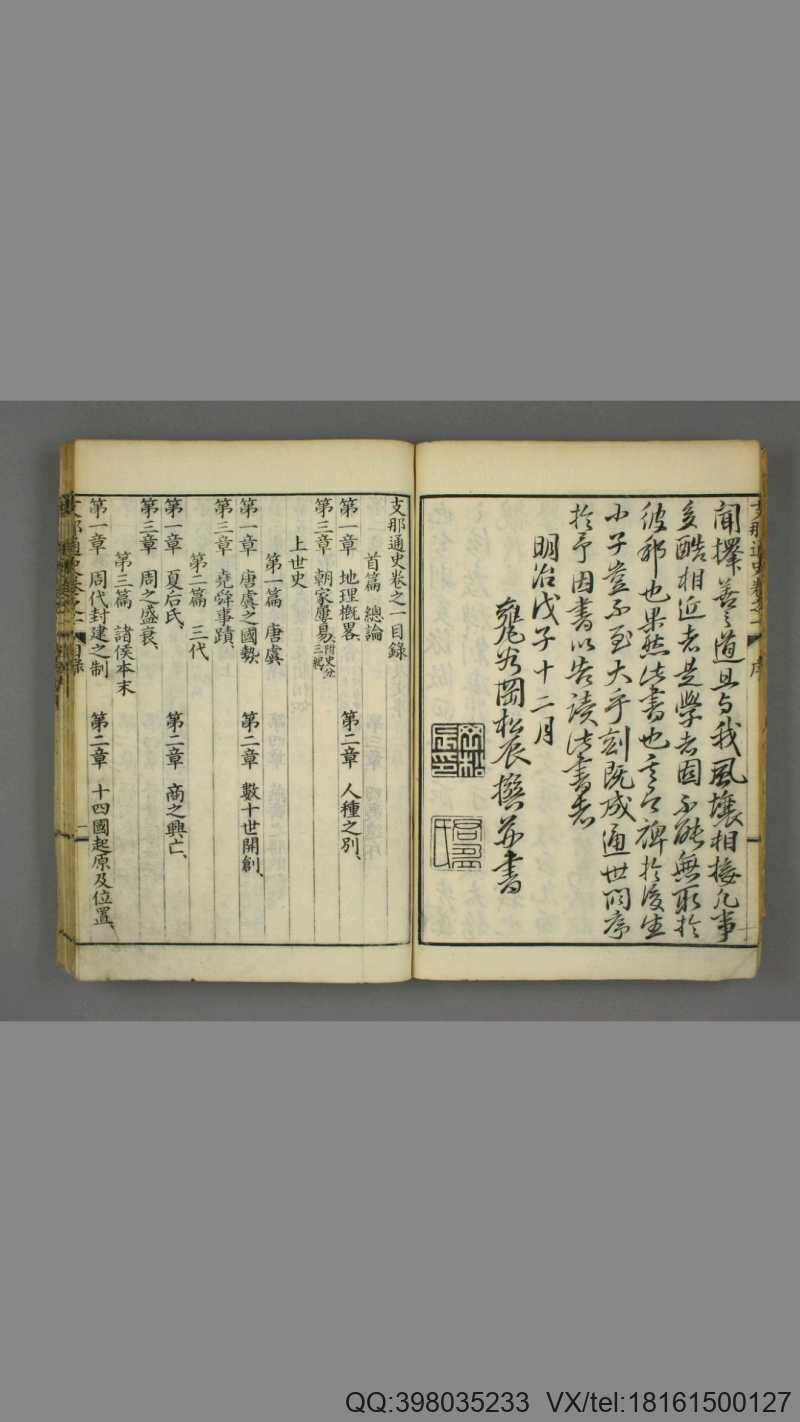 聞擇善之道且与我風壤相接凡事
多酷相近者是學者固不能無取於
彼邪也果然此書也其必裨於後生
小子豈不至大乎刻既成通世問序
於予因書以告讀此書者
明治戊子十二月
甕谷岡松辰撰并書
支那通史卷之一目錄
首篇 總論
第一章 地理概畧、 第二章 人種之別、
第三章 朝家屢易、附史分三紀
上世史
第一篇 唐虞
第一章 唐虞之國勢、 第二章 數十世開創、
第三章 堯舜事蹟、
第二篇 三代
第一章 夏后氏、 第二章 商之興亡、
第三章 周之盛衰、
第三篇 諸侯本末
第一章 周代封建之制 第二章 十四國起原及位置、
QQ:398035233 VX/tel:18161500127